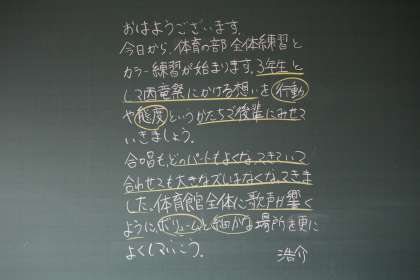 おはようございます。
今日から、体育の部全体練習と
カラー練習が始まります。3年生と
して西竜祭にかける想いを行動
や態度というかたちで後輩にみせて
いきましょう。
合唱も、どのパートもよくなってきていて
合わせても大きなズレはなくなってきま
した。体育館全体に歌声が響く
ようにボリュームと細かな場所を更に
よくしていこう。
浩介